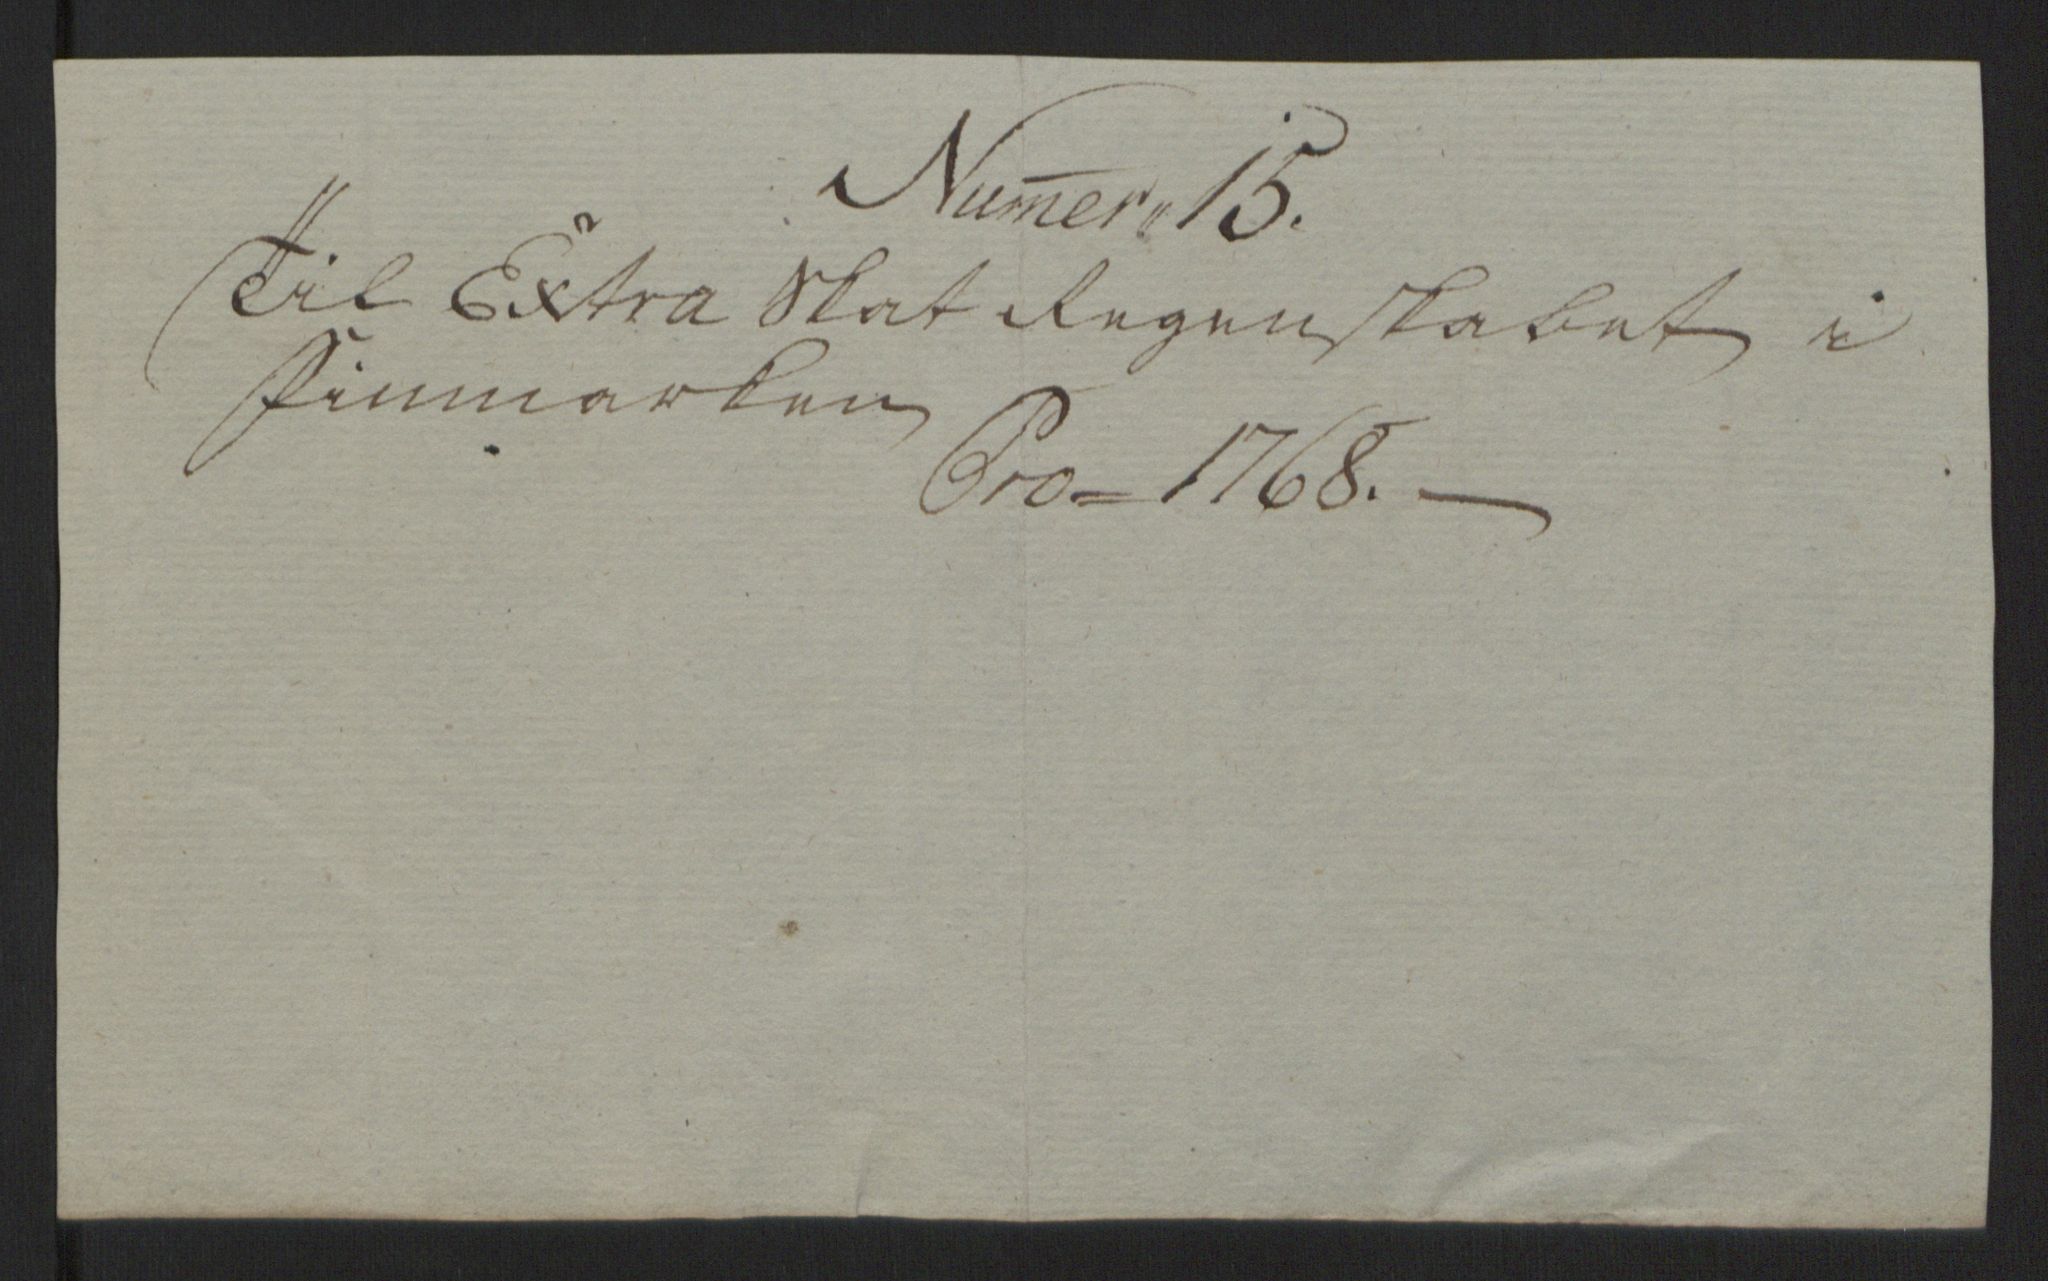 Num̅er 15.
Til Extra Skat Regenskabet i
Finmarken
Pro 1768.